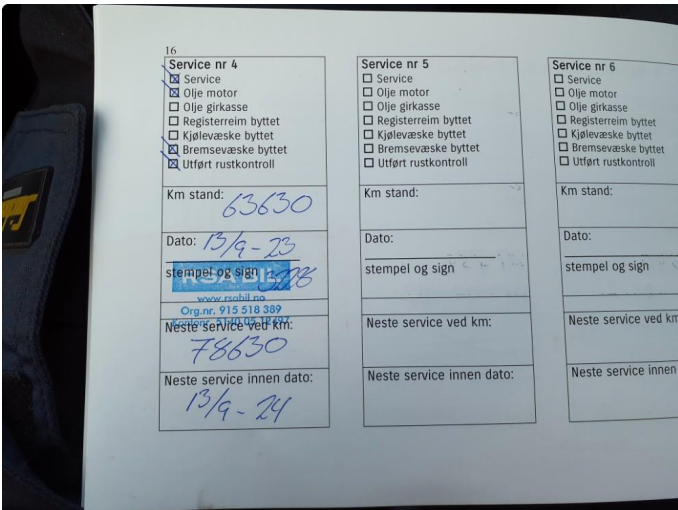 16
Service nr 4
Service
Olje motor
Olje girkasse
Registerreim byttet
Kjølevæske byttet
Bremsevæske byttet
Utført rustkontroll
Km stand:
63630
Dato: 13/9-23
stempel og sign
RSA BIL
www.rsabil.no
Org.nr. 915 518 389
Neste service ved km:
78630
Neste service innen dato:
13/9-24
Service nr 5
Service
Olje motor
Olje girkasse
Registerreim byttet
Kjølevæske byttet
Bremsevæske byttet
Utført rustkontroll
Km stand:
Dato:
stempel og sign
Neste service ved km:
Neste service innen dato:
Service nr 6
Service
Olje motor
Olje girkasse
Registerreim byttet
Kjølevæske byttet
Bremsevæske byttet
Utført rustkontroll
Km stand:
Dato:
stempel og sign
Neste service ved km
Neste service innen